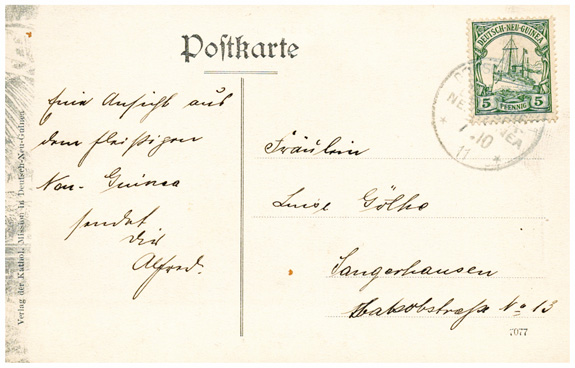 Postkarte
DEUTSCH-NEU-GUINEA
5 PFENNIG 5
7-10
11
Eine Ansicht aus
dem fleißigen
Neu-Guinea
sendet
Dir
Alfred.
Fräulein
Luise Gölke
Sangerhausen
Jakobstraße No 13
Verlag der Kathol. Mission in Deutsch-Neu-Guinea
7077